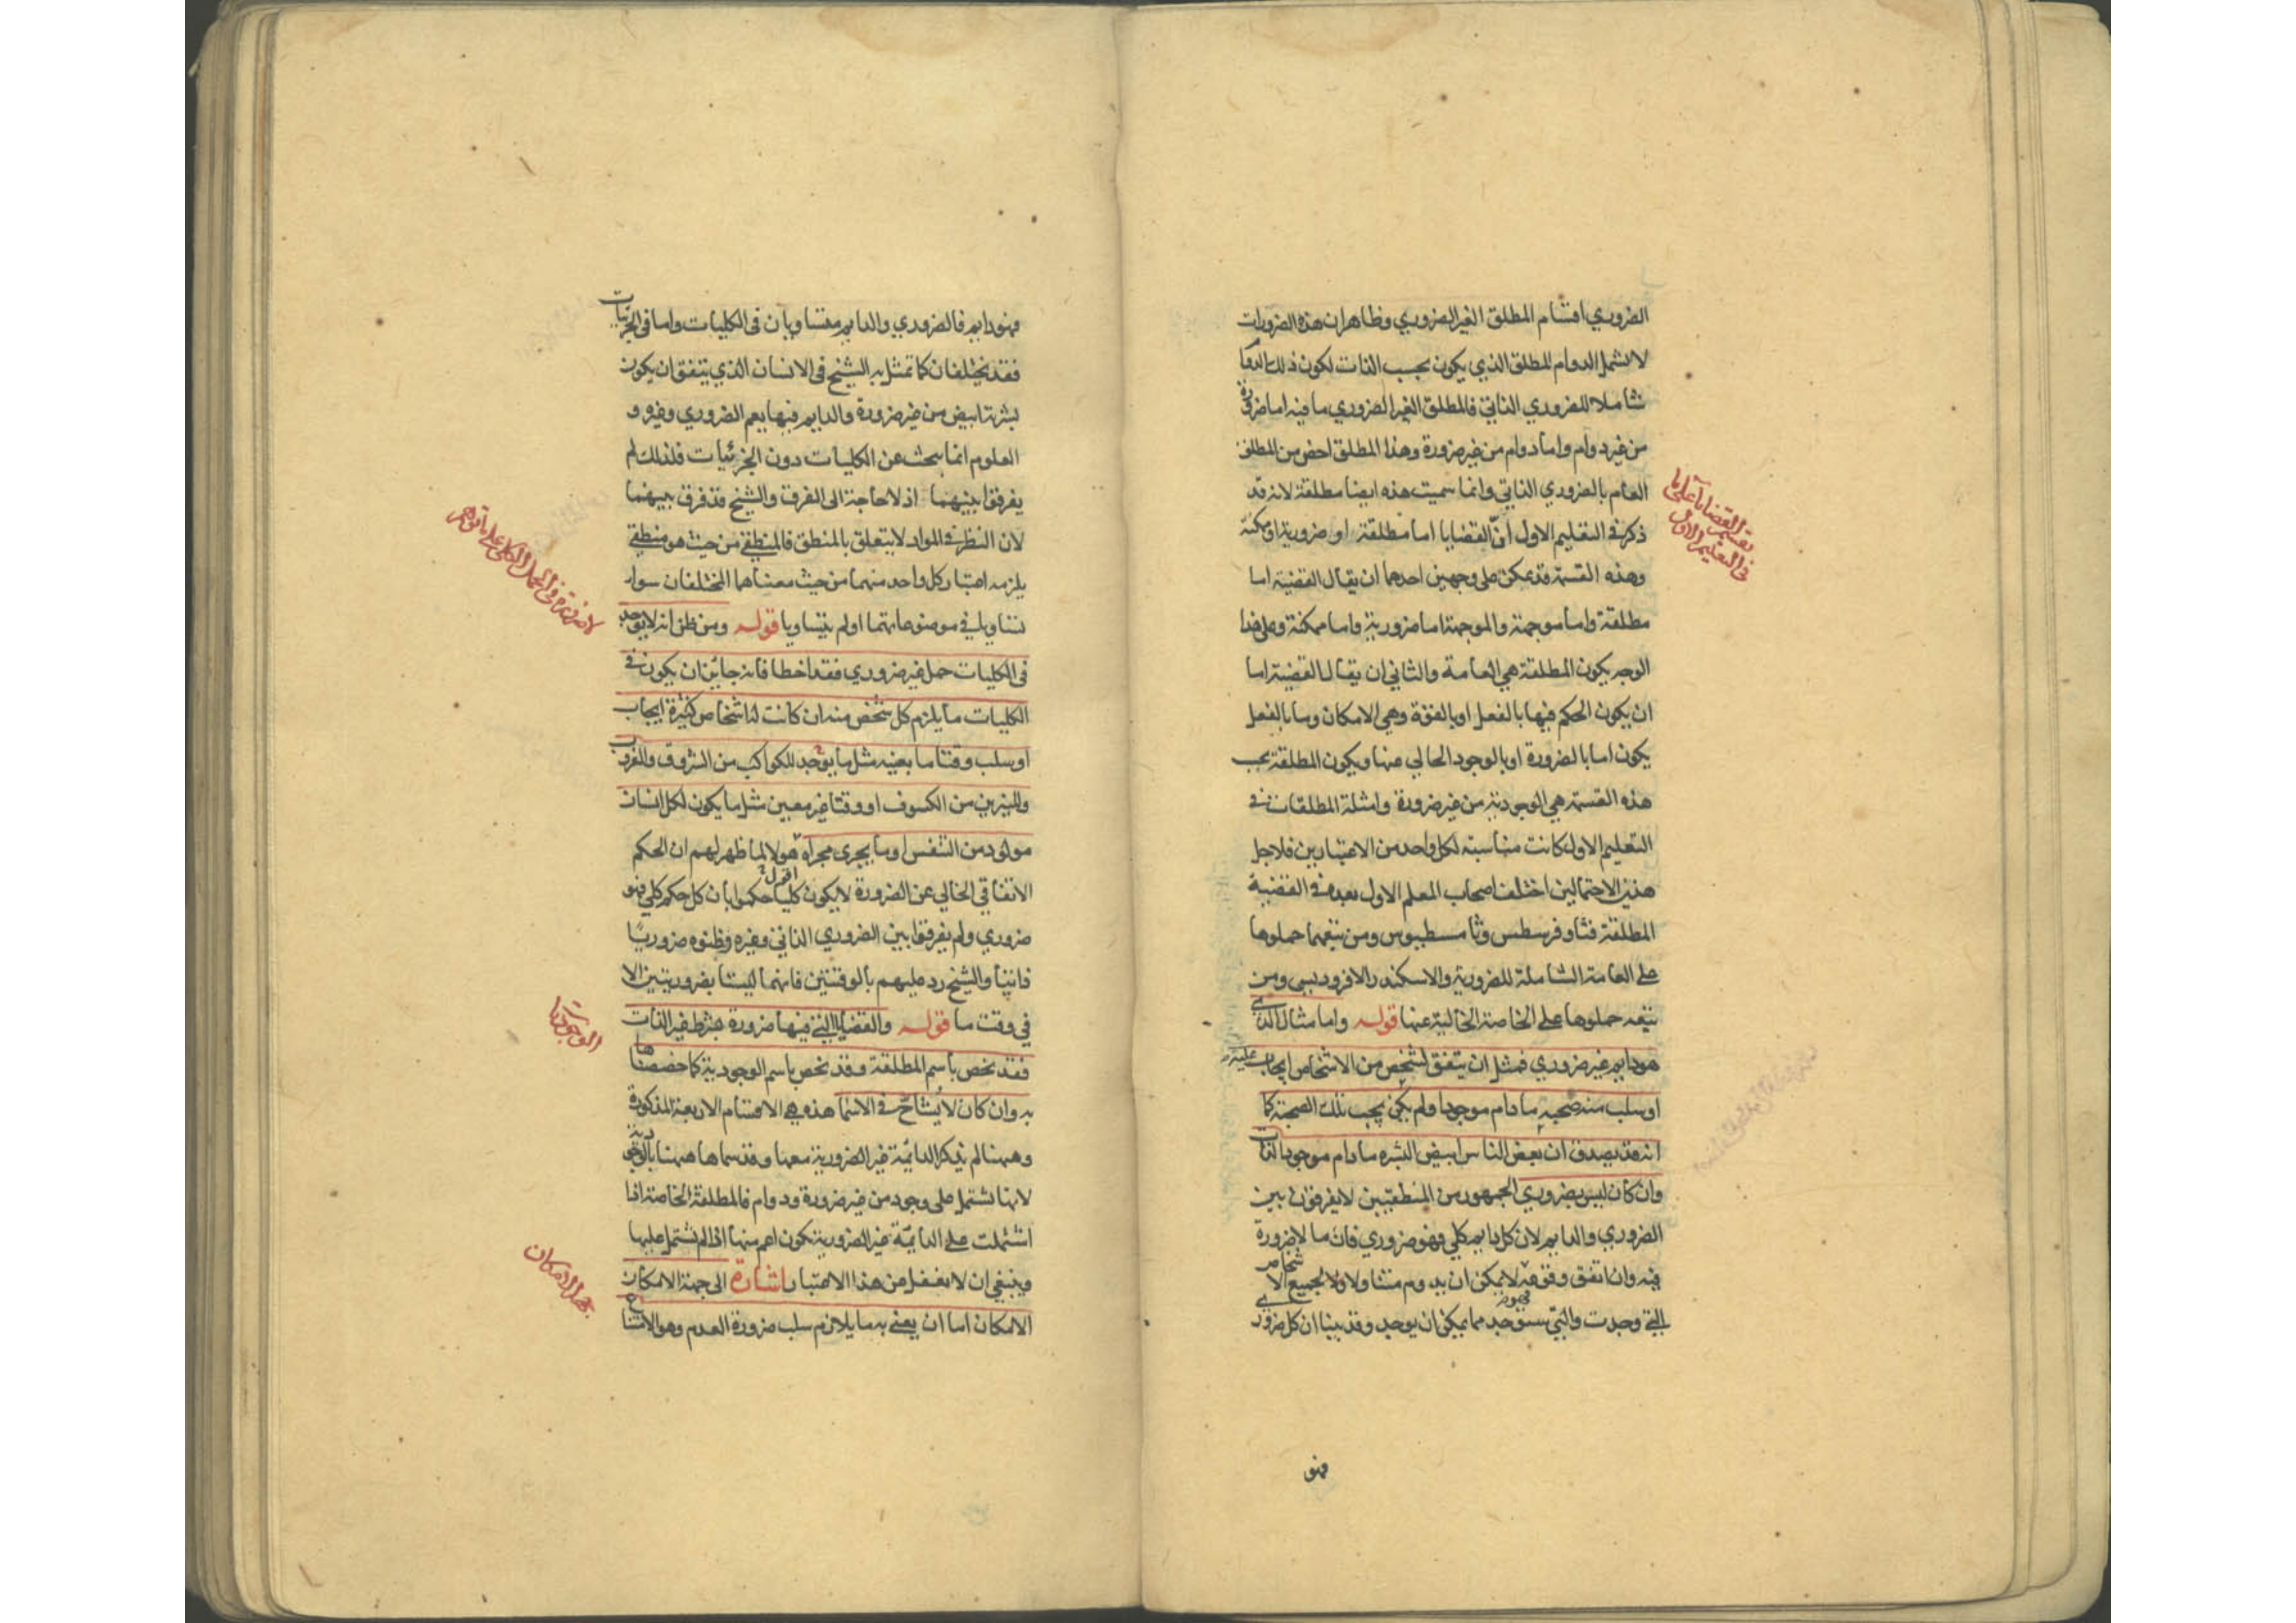 الضروري اقسام المطلق الغير الضروري وظاهر ان هذه الضرورات
لا تشمل الدوام المطلق الذي يكون بحسب الذات لكون ذلك الدوام
شاملا للضروري الذاتي فالمطلق الغير الضروري ما فيه اما ضرورة
من غير دوام واما دوام من غير ضرورة وهذا المطلق اخص من المطلق
العام بالضروري الذاتي وانما سميت هذه ايضا مطلقة لانه قد
ذكر في التعليم الاول انّ القضايا اما مطلقة او ضرورية او ممكنة
وهذه القسمة قد يمكن على وجهين احدهما ان يقال القضية اما
مطلقة واما موجهة والموجهة اما ضرورية واما ممكنة وعلى هذا
الوجه يكون المطلقة هي العامة والثاني ان يقال القضية اما
ان يكون الحكم فيها بالفعل او بالقوة وهي الامكان وما بالفعل
يكون اما بالضرورة او بالوجود الخالي عنها ويكون المطلقة بحسب
هذه القسمة هي الوجودية من غير ضرورة وامثلة المطلقات في
التعليم الاول كانت مناسبة لكل واحد من الاعتبارين فلاجل
هذين الاحتمالين اختلف اصحاب المعلم الاول بعده في القضية
المطلقة فثاوفرسطس وثامسطيوس ومن تبعهما حملوها
على العامة الشاملة للضرورية والاسكندر الافروديسي ومن
تبعه حملوها على الخاصة الخالية عنها قوله واما مثال الذي
هو دايم غير ضروري فمثل ان يتفق لشخص من الاشخاص ايجاب عليه
او سلب منه صحبه ما دام موجودا ولم يكن يجب تلك الصحبة كما
انه قد يصدق ان بعض الناس ابيض البشره ما دام موجود الذات
وان كان ليس بضروري الجمهور من المنطقيين لا يفرقون بين
الضروري والدايم لان كل دايم كلي فهو ضروري فان ما لا ضرورة
فيه وان اتفق وقوعه لا يمكن ان يدوم متناولا لجميع الاشخاص
التي وجدت والتي ستوجد مما يمكن ان يوجد وقد بينا ان كل ضروري
فهو
تقسيم القضايا على ما
في التعليم الاول
فهو دايم فالضروري والدايم متساويان في الكليات واما في الجزئيات
فقد يختلفان كما تمثل به الشيخ في الانسان الذي يتفق ان يكون
بشرته ابيض من غير ضرورة والدايم فيها يعم الضروري وغيره و
العلوم انما يبحث عن الكليات دون الجزئيات فلذلك لم
يفرقوا بينهما اذ لا حاجة الى الفرق والشيخ قد فرق بينهما
لان النظر في المواد لا يتعلق بالمنطق فالمنطقي من حيث هو منطقي
يلزمه اعتبار كل واحد منهما من حيث معناهما المختلفان سواء
تساويا في موضوعاتهما او لم يتساويا قوله ومن ظن انه لا يوجد
في الكليات حمل غير ضروري فقد اخطا فانه جائز ان يكون في
الكليات ما يلزم كل شخص منه ان كانت لنا اشخاص كثيرة ايجاب
او سلب وقتا ما بعينه مثل ما يوجد للكواكب من الشروق والغروب
وللنيرين من الكسوف او وقتا غير معين مثل ما يكون لكل انسان
مولود من التنفس او ما يجري مجراه هولا لما ظهر لهم ان الحكم
الاتفاقي الخالي عن الضرورة لا يكون كليا حكموا بان كل حكم كلي فهو
ضروري ولم يفرقوا بين الضروري الذاتي وغيره وظنوه ضروريا
ذاتيا والشيخ رد عليهم بالوقتيين فانهما ليستا بضروريتين الا
في وقت ما قوله والقضايا التي فيها ضرورة بشرط غير الذات
فقد تخص باسم المطلقة وقد تخص باسم الوجودية كما خصصناها
به وان كان لا يشاحّ في الاسما هذه هي الاقسام الاربعة المذكورة
وههنا لم يذكر الدائمة غير الضرورية معها وقد سماها ههنا بالوجودية
لانها تشتمل على وجود من غير ضرورة ودوام فالمطلقة الخاصة اذا
اشتملت على الدائمة غير الضرورية تكون اعم منها اذا لم تشتمل عليها
وينبغي ان لا نغفل عن هذا الاعتبار اشارة الى جهة الامكان
الامكان اما ان يعنى به ما يلازم سلب ضرورة العدم وهو الامتناع
الوجوديات
جهة الامكان